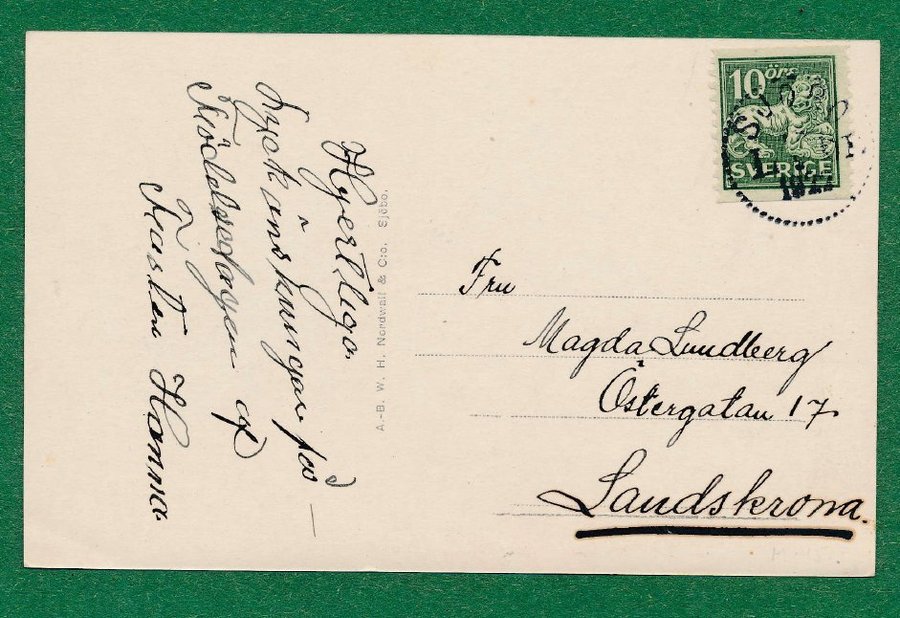 Hjertliga
lyckönskningar på
födelsedagen af
Faster Hanna.
A.-B. W. H. Nordwall & C:o. Sjöbo.
10 ÖRE
SVERIGE
SJÖBO
Fru
Magda Lundberg
Östergatan 17
Landskrona.